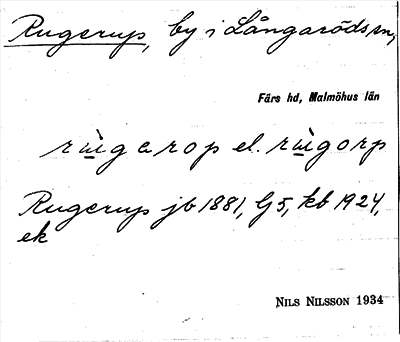 Rugerup, by i Långaröds sn,
Färs hd, Malmöhus län
rùgarop el. rùgorp
Rugerup jb 1881, G5, kb 1924,
ek
NILS NILSSON 1934